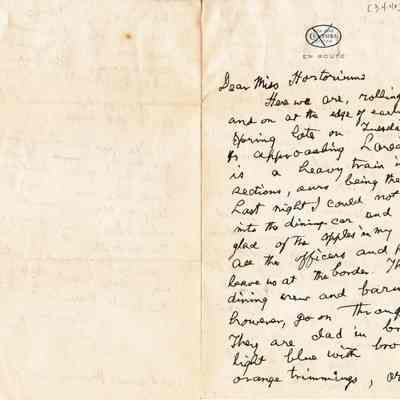 [344]
EN ROUTE
Dear Miss Hortoriums
Here we are, rolling
and on at the edge of early
Spring late on Tuesda
approaching Lared
is a heavy train i
sections, ours being the
Last night I could not
into the dining car and
glad of the apples in my
all the officers and
leave us at the border. Th
dining crew and
however, go on throug
They are clad in br
light blue with bro
orange trimmings, or